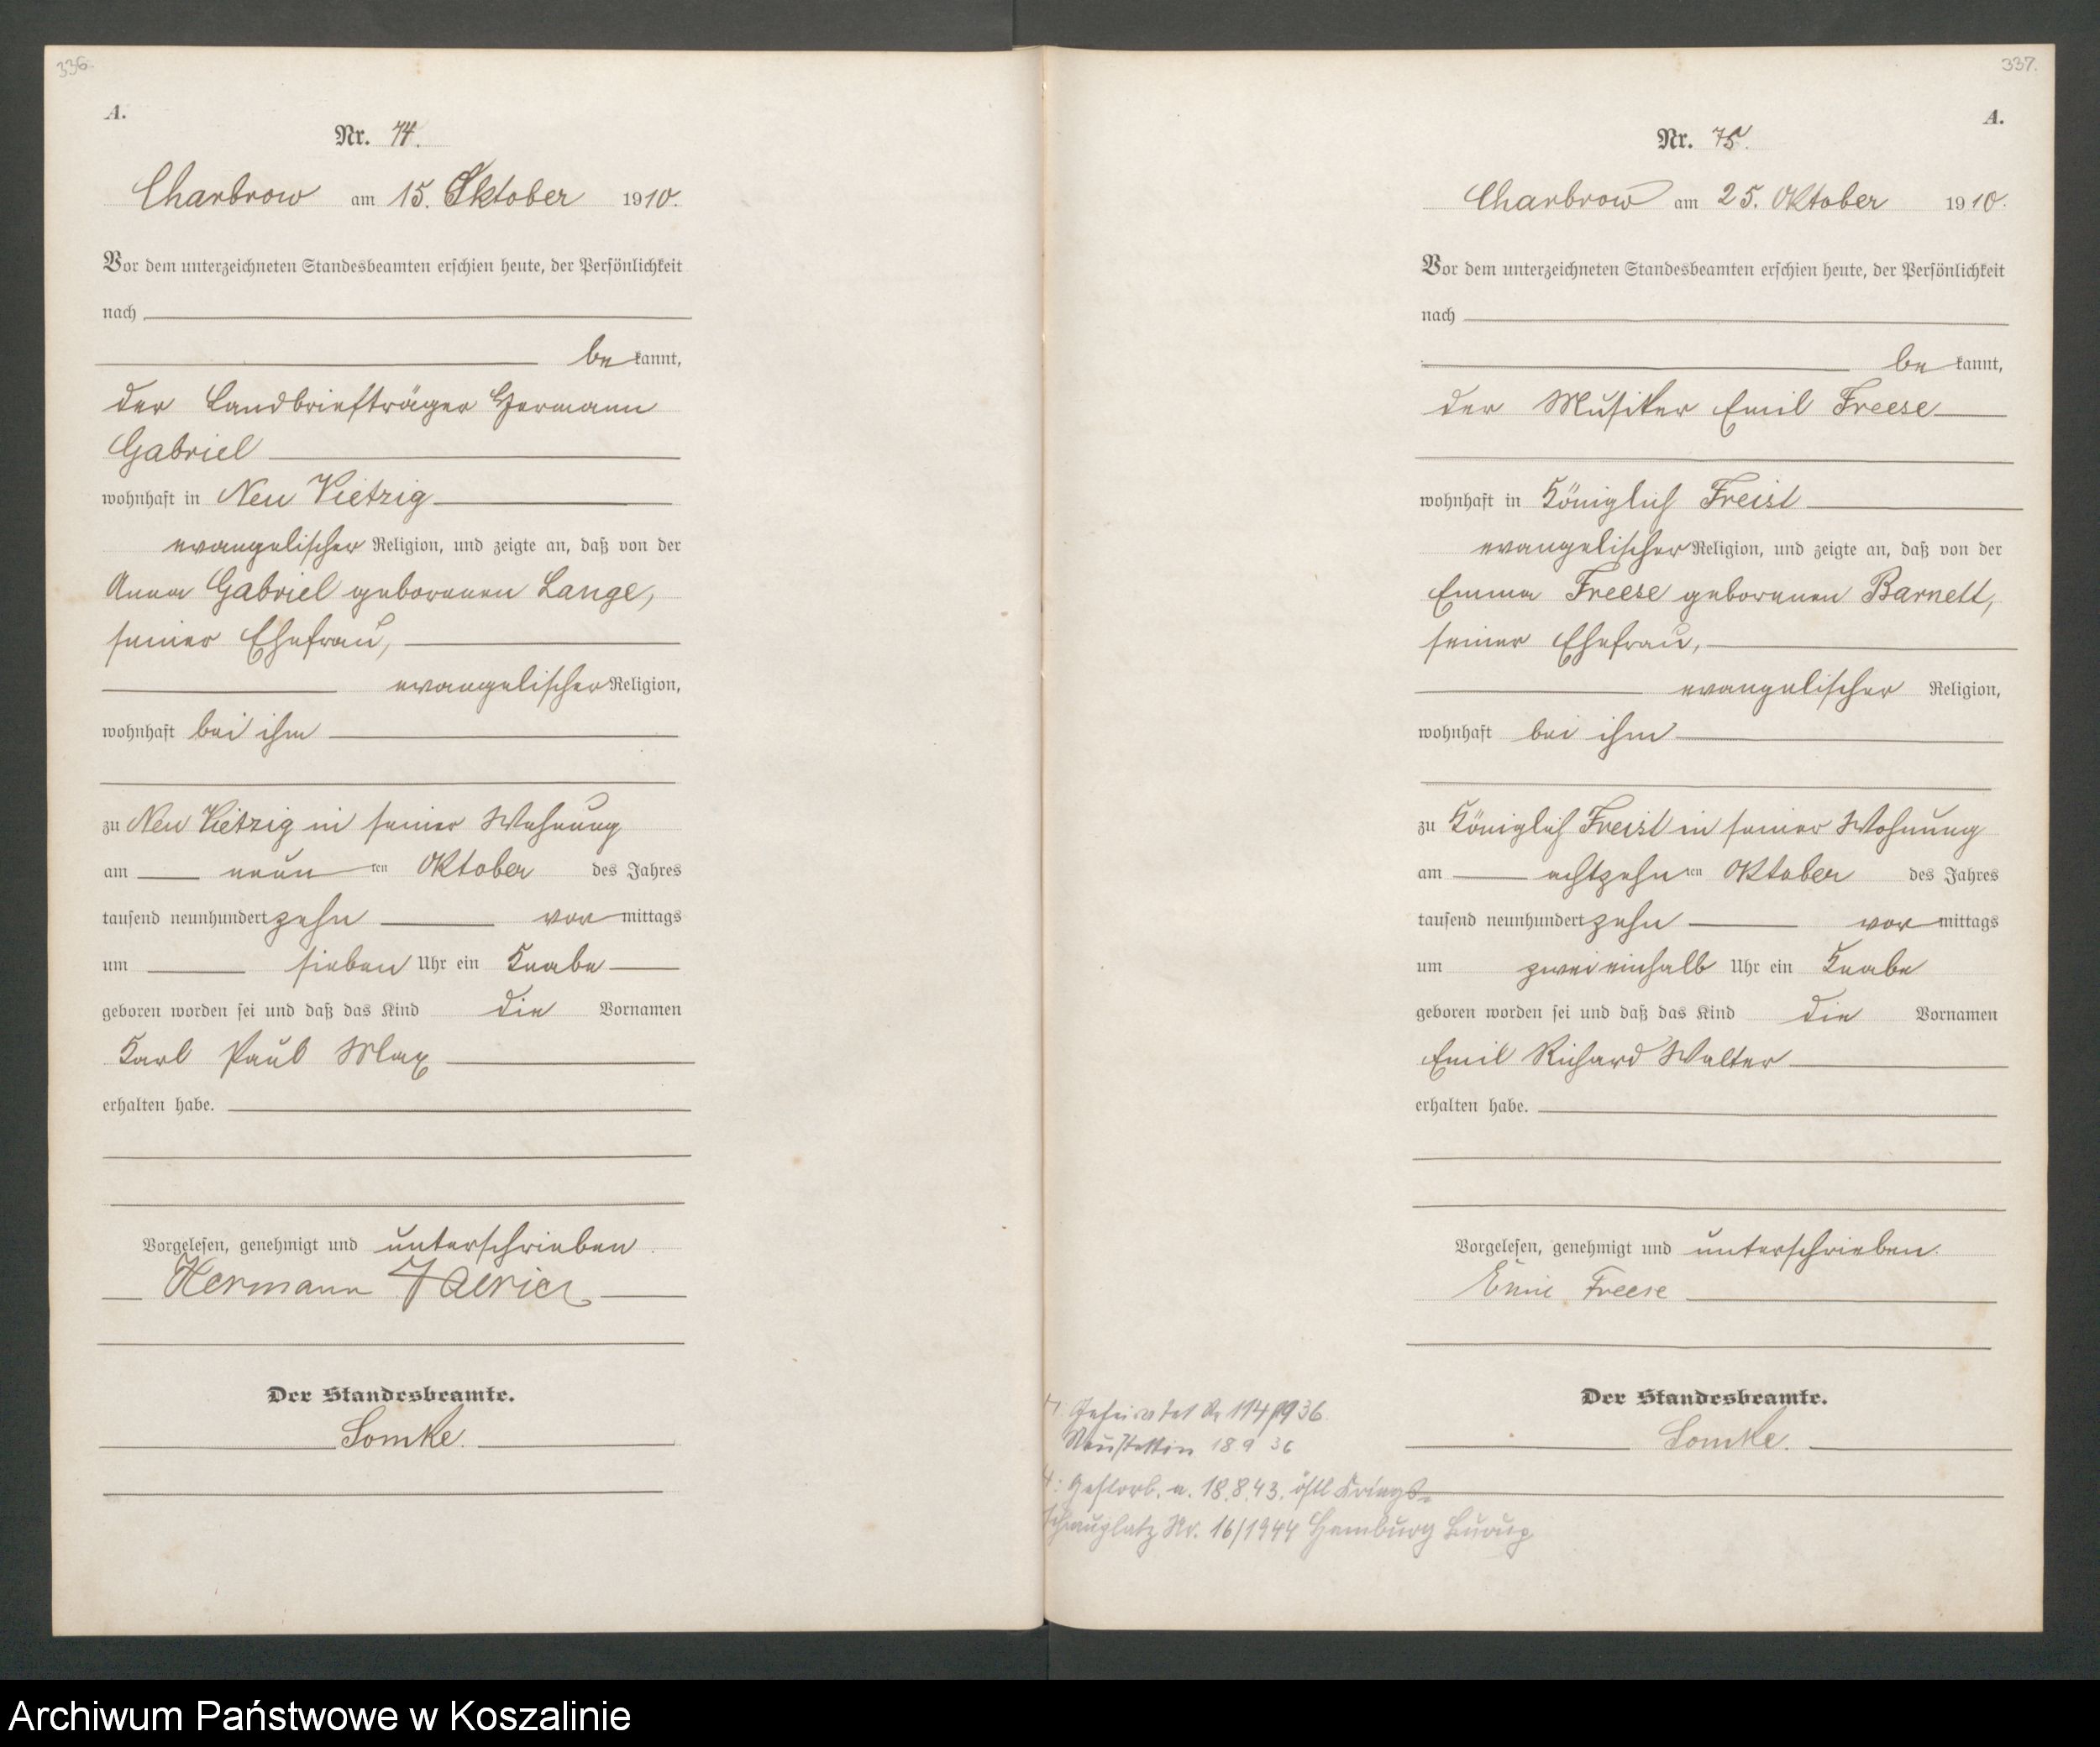 336.
A.
Nr. 74.
Charbrow am 15. Oktober 1910.
Vor dem unterzeichneten Standesbeamten erschien heute, der Persönlichkeit
nach
be kannt,
der Landbriefträger Hermann
Gabriel
wohnhaft in Neu Vietzig
evangelischer Religion, und zeigte an, daß von der
Anna Gabriel geborenen Lange,
seiner Ehefrau,
evangelischer Religion,
wohnhaft bei ihm
zu Neu Vietzig in seiner Wohnung
am neun ten Oktober des Jahres
tausend neunhundert zehn vor mittags
um sieben Uhr ein Knabe
geboren worden sei und daß das Kind die Vornamen
Karl Paul Max
erhalten habe.
Vorgelesen, genehmigt und unterschrieben
Hermann Gabriel
Der Standesbeamte.
Lomke.
337.
A.
Nr. 75.
Charbrow am 25. Oktober 1910.
Vor dem unterzeichneten Standesbeamten erschien heute, der Persönlichkeit
nach
be kannt,
der Musiker Emil Freese
wohnhaft in Königlich Freist
evangelischer Religion, und zeigte an, daß von der
Emma Freese geborenen Barnett,
seiner Ehefrau,
evangelischer Religion,
wohnhaft bei ihm
zu Königlich Freist in seiner Wohnung
am achtzehn ten Oktober des Jahres
tausend neunhundert zehn vor mittags
um zweieinhalb Uhr ein Knabe
geboren worden sei und daß das Kind die Vornamen
Emil Richard Walter
erhalten habe.
Vorgelesen, genehmigt und unterschrieben.
Emil Freese
Der Standesbeamte.
Lomke.
Geheiratet Nr 114/1936
Neustettin 18 9 36
Gestorb. a. 18.8.43. östl Kriegs-
schauplatz Nr. 16/1944 Hamburg Lurup
Archiwum Państwowe w Koszalinie